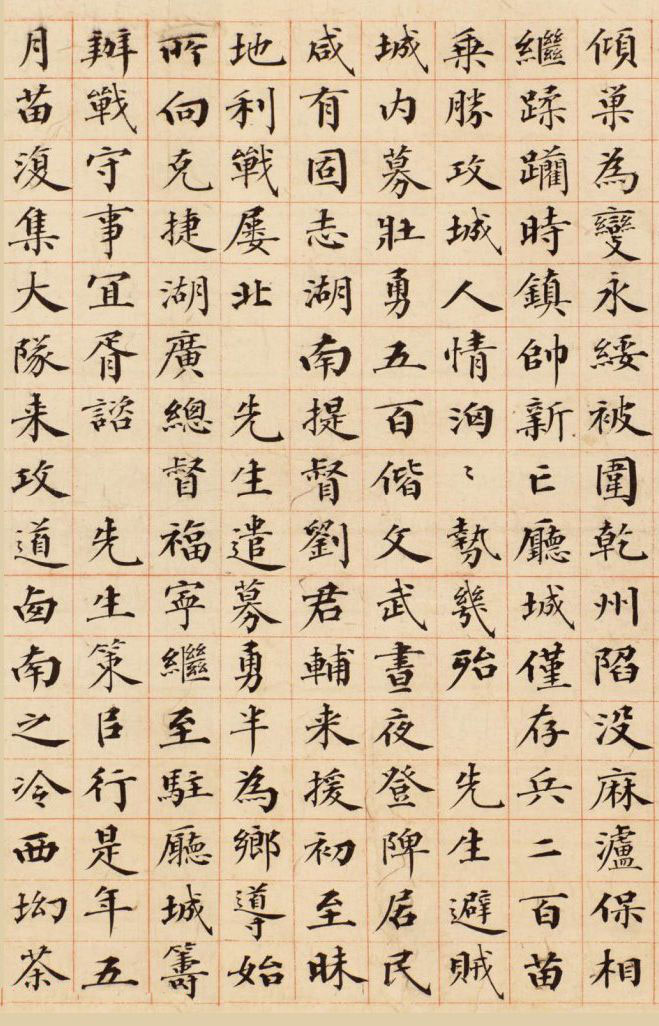 傾巢為變永綏被圍乾州陷没麻瀘保相
繼蹂躪時鎮帥新亡廳城僅存兵二百苗
乘勝攻城人情洶〻勢幾殆 先生避賊
城内募壯勇五百偕文武晝夜登陴居民
咸有固志湖南提督劉君輔来援初至昧
地利戰屡北 先生遣募勇半為鄉導始
所向克捷湖廣總督福寧繼至駐廳城籌
辦戰守事宜胥諮 先生策㠯行是年五
月苗復集大隊来攻道南之冷西坳茶